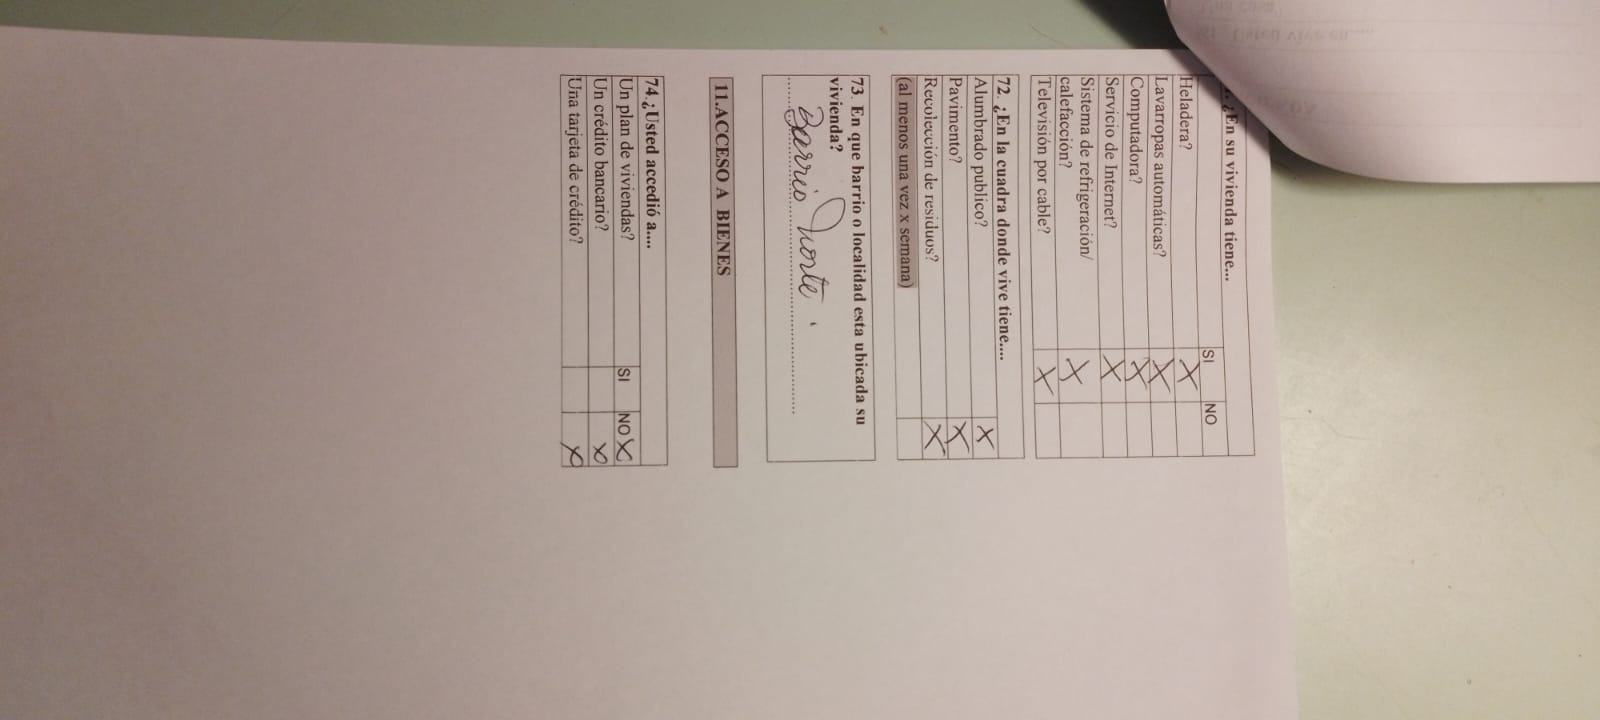 . ¿En su vivienda tiene...
SI NO
Heladera? X
Lavarropas automáticas? X
Computadora? X
Servicio de Internet? X
Sistema de refrigeración/
calefacción? X
Televisión por cable? X
72. ¿En la cuadra donde vive tiene....
Alumbrado publico? X
Pavimento? X
Recolección de residuos? X
(al menos una vez x semana)
73. En que barrio o localidad esta ubicada su
vivienda?
Barrio Norte.
11.ACCESO A BIENES
74.¿Usted accedió a....
Un plan de viviendas? SI NO X
Un crédito bancario? X
Una tarjeta de crédito? X